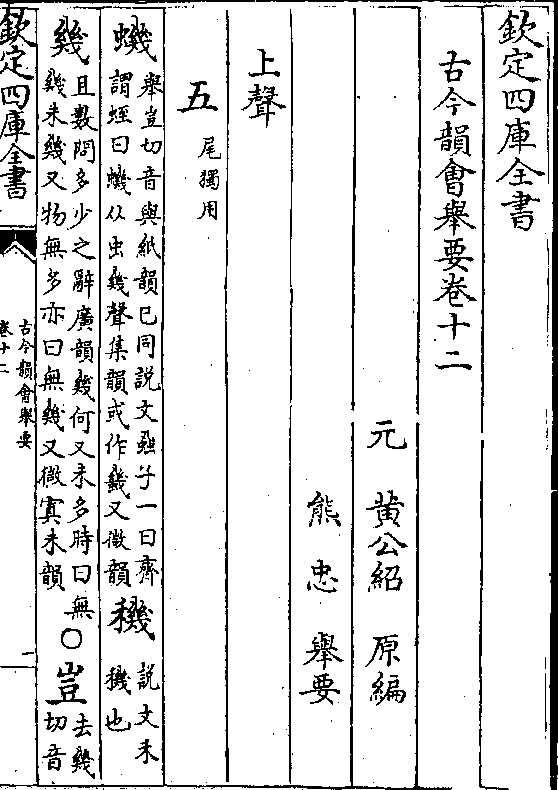 欽定四庫全書
古今韻會舉要卷十二
元 黄公紹 原編
熊忠 舉要
上聲
五 尾獨用
蟣 舉豈切音與紙韻巳同説文蝨子一曰齊
謂蛭曰蟣从虫幾聲集韻或作𧔎又微韻 穖 説文禾
穖也
幾 且數問多少之辭廣韻幾何又未多時曰無
幾未幾又物無多亦曰無幾又微寘未韻 ○ 豈 去幾
切音
欽定四庫全書
古今韻會舉要
卷十二
一